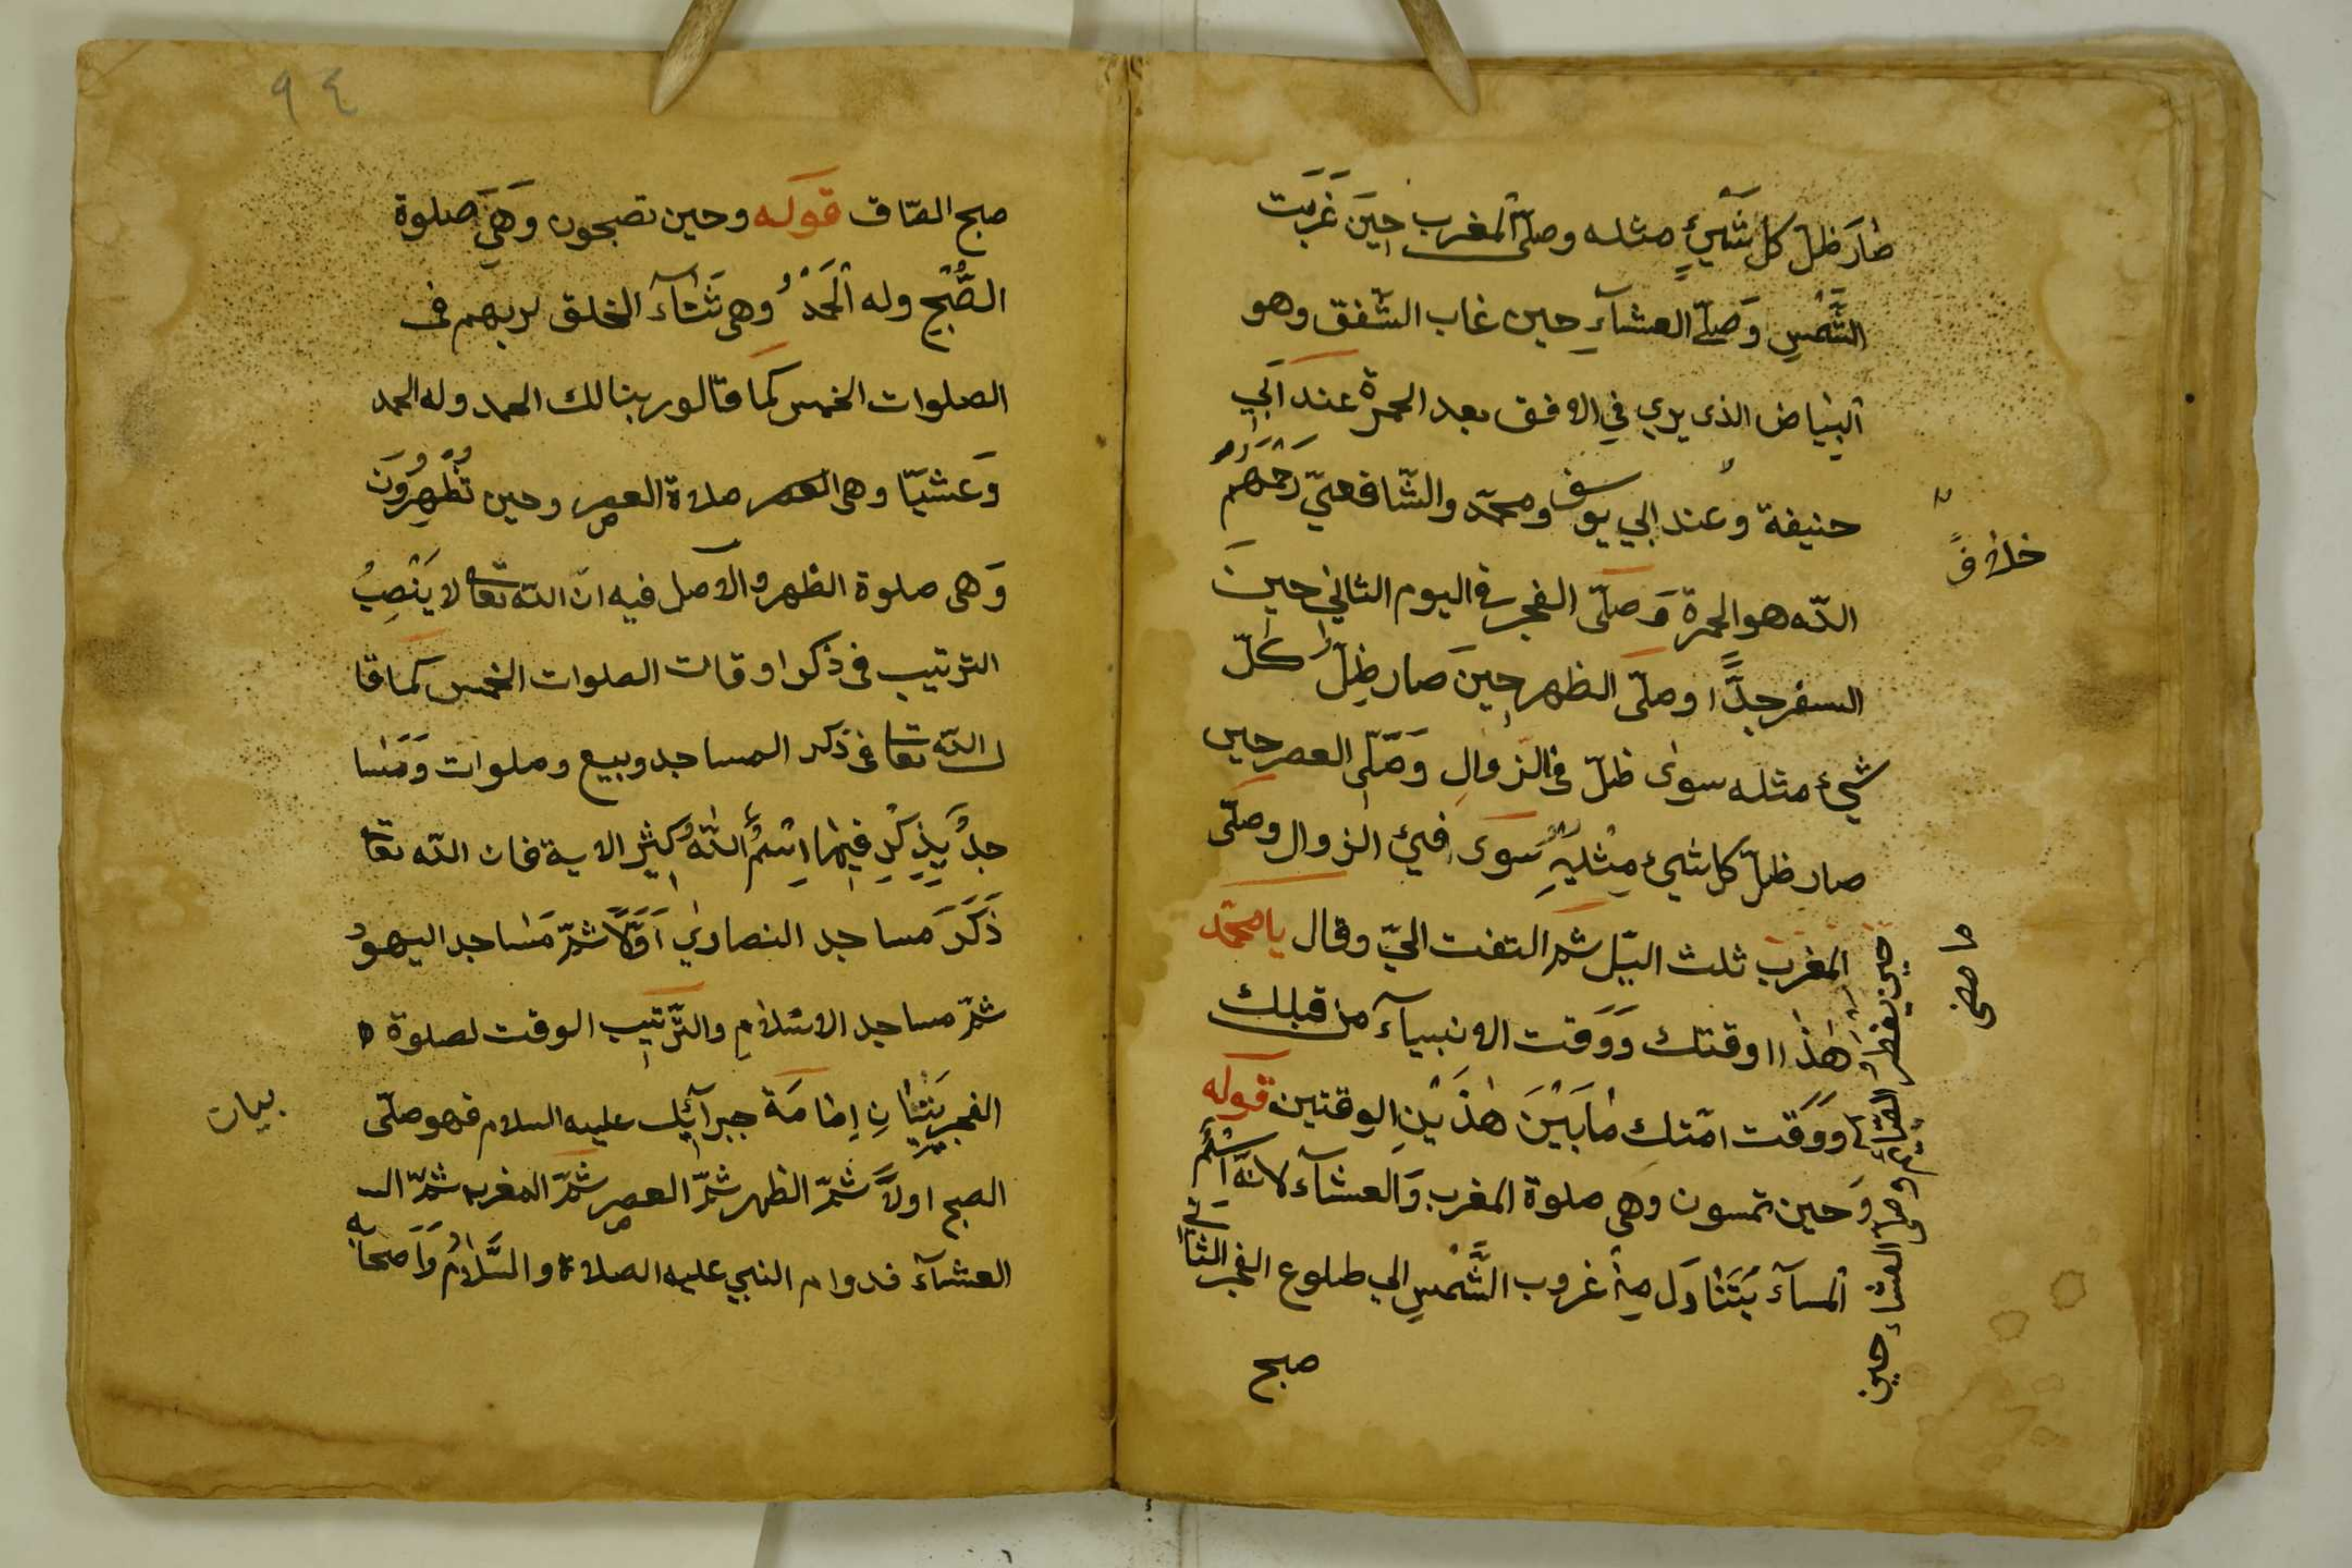 صارَ ظلّ كل شَيْءٍ مثله وصلّى المغرب حِينَ غَرَبَت
الشَّمْسِ وَصَلّى العشآءِ حين غاب الشّفق وهو
البيَاض الذى يرى فِي الافق بعد الحمرة عندَ ابي
حنيفة وعند ابي يوسف ومحمّد والشّافعىّ رَحمَهُم
خلافً
الله هو الحمرة وَصَلّى الفجر فى اليوم الثانى حينَ
السفر جدًّا وصلّى الظهر حِينَ صار ظِلّ كلّ
شىء مثله سوى ظلّ فى الزوالِ وَصَلّى العصر حين
صار ظلّ كل شىء مِثْلَيْهِ سَوَى فىء الزوال وصلّى
المغرب ثلث اليّل ثم التفت الىّ وقال يا محمّد
حين يفطر الصّائم وصلى العشاء حين
ما مضى
هَذَا اوقتك وَوَقت الانبيآء من قبلك
ووَقت امّتك مَابَيْنَ هٰذَيْنِ الوقتين قوله
وَحين تمسون وهى صلوة المغرب وَالعشآء لانّه اسْم
المسآء يَتَنَاوَل مِنْ غروب الشَّمْسِ الى طلوع الفجر الثانى
صبح
٩٤
صبح الصّاق قوله وحين تصبحون وَهِىَ صلوة
الصُّبْحِ وله الْحَمْدُ وهى ثَنَآءَ الخلق لربهم فى
الصلوات الخمس كَمَا قالو ربنا لك الحمد وله الحمد
وَعَشيّا وهى العصر صلاة العصر وحين تُظْهِرُونَ
وَهى صلوة الظهر والاصل فيه انّ الله تعا لا يَنْصِبُ
الترتيب فى ذكر اوقات الصلوات الخمس كَمَا قا
ل الله تعا فى ذكر المساجد وبيع وصلوات وَمَسَا
جدُ يُذِكَرِ فِيهَا اسْمُ اللهُ كَثِيرِ الاية فان الله تعا
ذَكَرَ مساجد النصارى اَوَّلًا ثمّ مَسَاجد اليهود
ثمّ مساجد الاسلام والتَّرتيب الوقت لصلوة
بيان
الفجر بَيَان اِمَامَة جبرآئيل عليه السلام فهو صلّى
الصبح اولًا ثمّ الظهر ثمّ العصر ثمّ المغرب ثمّ الـ
العشآء فدوام النبي عليه الصلاة والسَّلَامُ وَاَصحابه